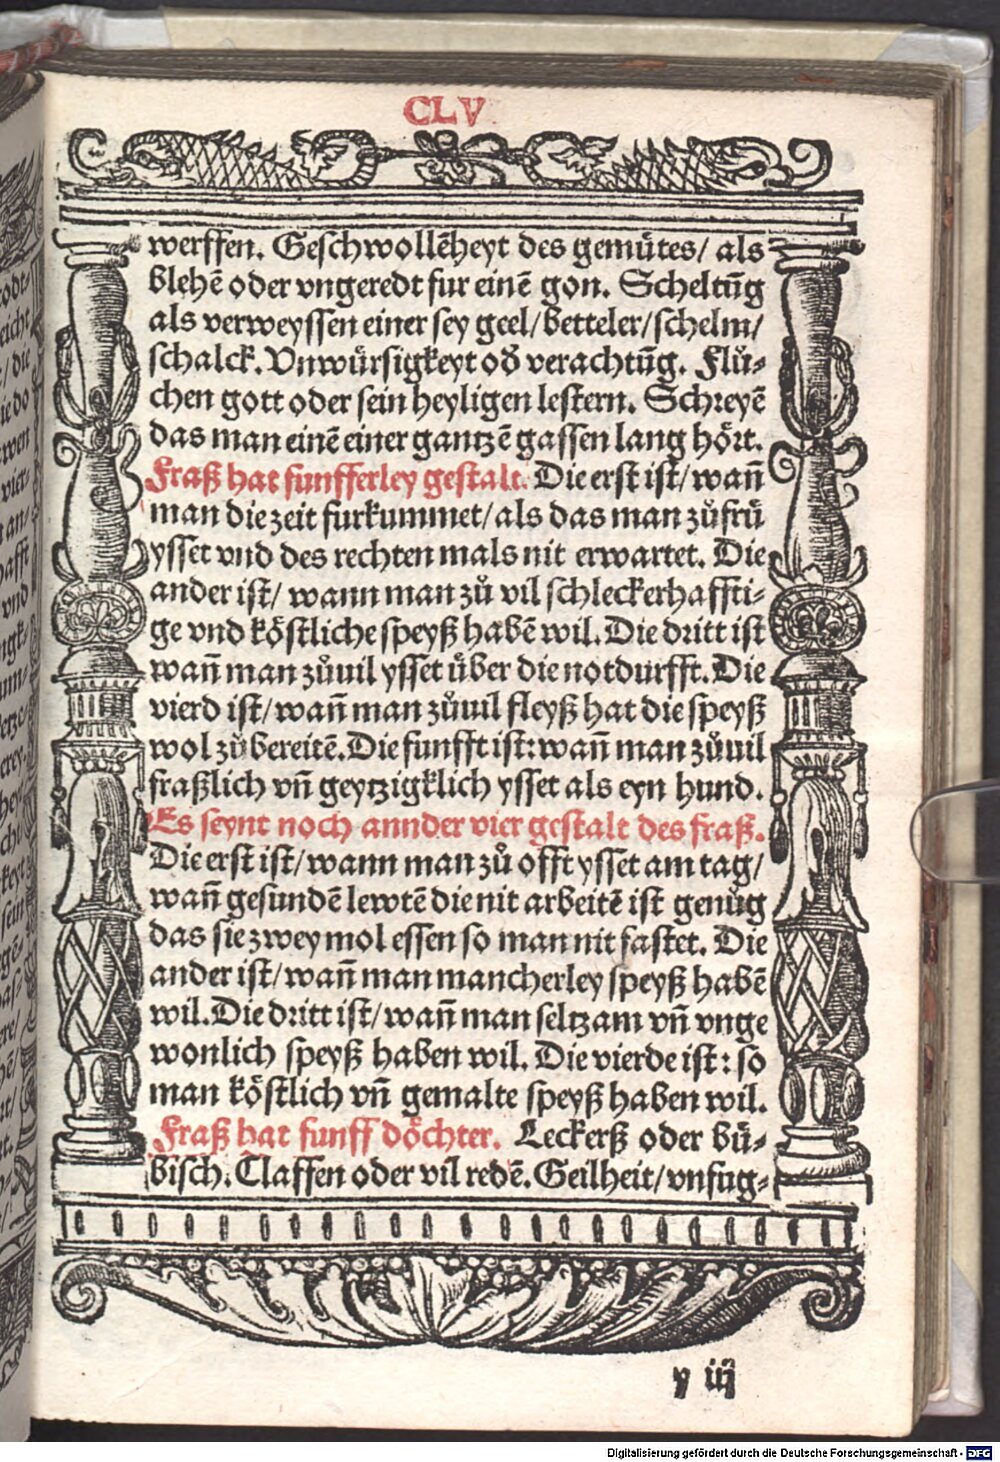 CLV
werffen. Geschwollēheyt des gemütes/ als
blehē oder vngeredt fur einē gon. Scheltūg
als verweyssen einer sey geel/betteler/schelm/
schalck. Vnwürsigkeyt od̄ verachtūg. Flů-
chen gott oder sein heyligen lestern. Schreyē
das man einē einer gantzē gassen lang hört.
Fraß hat funfferley gestalt. Die erst ist/ wañ
man die zeit furkummet/als das man zůfrü
ysset vnd des rechten mals nit erwartet. Die
ander ist/ wann man zů vil schleckerhaffti-
ge vnd köstliche speyß habē wil. Die dritt ist
wañ man zůuil ysset über die notdurfft. Die
vierd ist/wañ man zůuil fleyß hat die speyß
wol zů bereitē. Die funfft ist: wañ man zůuil
fraßlich vñ geytzigklich ysset als eyn hund.
Es seynt noch annder vier gestalt des fraß.
Die erst ist/wann man zů offt ysset am tag/
wañ gesundē lewtē die nit arbeitē ist genůg
das sie zwey mol essen so man nit fastet. Die
ander ist/wañ man mancherley speyß habē
wil. Die dritt ist/wañ man seltzam vñ vnge
wonlich speyß haben wil. Die vierde ist: so
man köstlich vñ gemalte speyß haben wil.
Fraß hat funff döchter. Leckerß oder bü-
bisch. Claffen oder vil redē. Geilheit/vnfug-
y iij
Digitalisierung gefördert durch die Deutsche Forschungsgemeinschaft - DFG